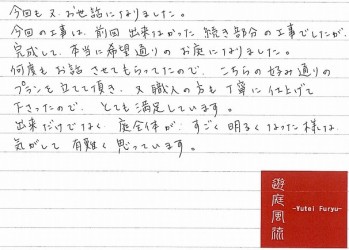 今回も又お世話になりました。
今回の工事は、前回出来なかった続き部分の工事でしたが、
完成して、本当に希望通りのお庭になりました。
何度もお話させてもらってたので、こちらの好み通りの
プランを立てて頂き、又職人の方も丁寧に仕上げて
下さったので、とても満足しています。
出来だけでなく、庭全体が、すごく明るくなった様な
気がして有難く思っています。
遊庭風流
-Yutei Furyu-